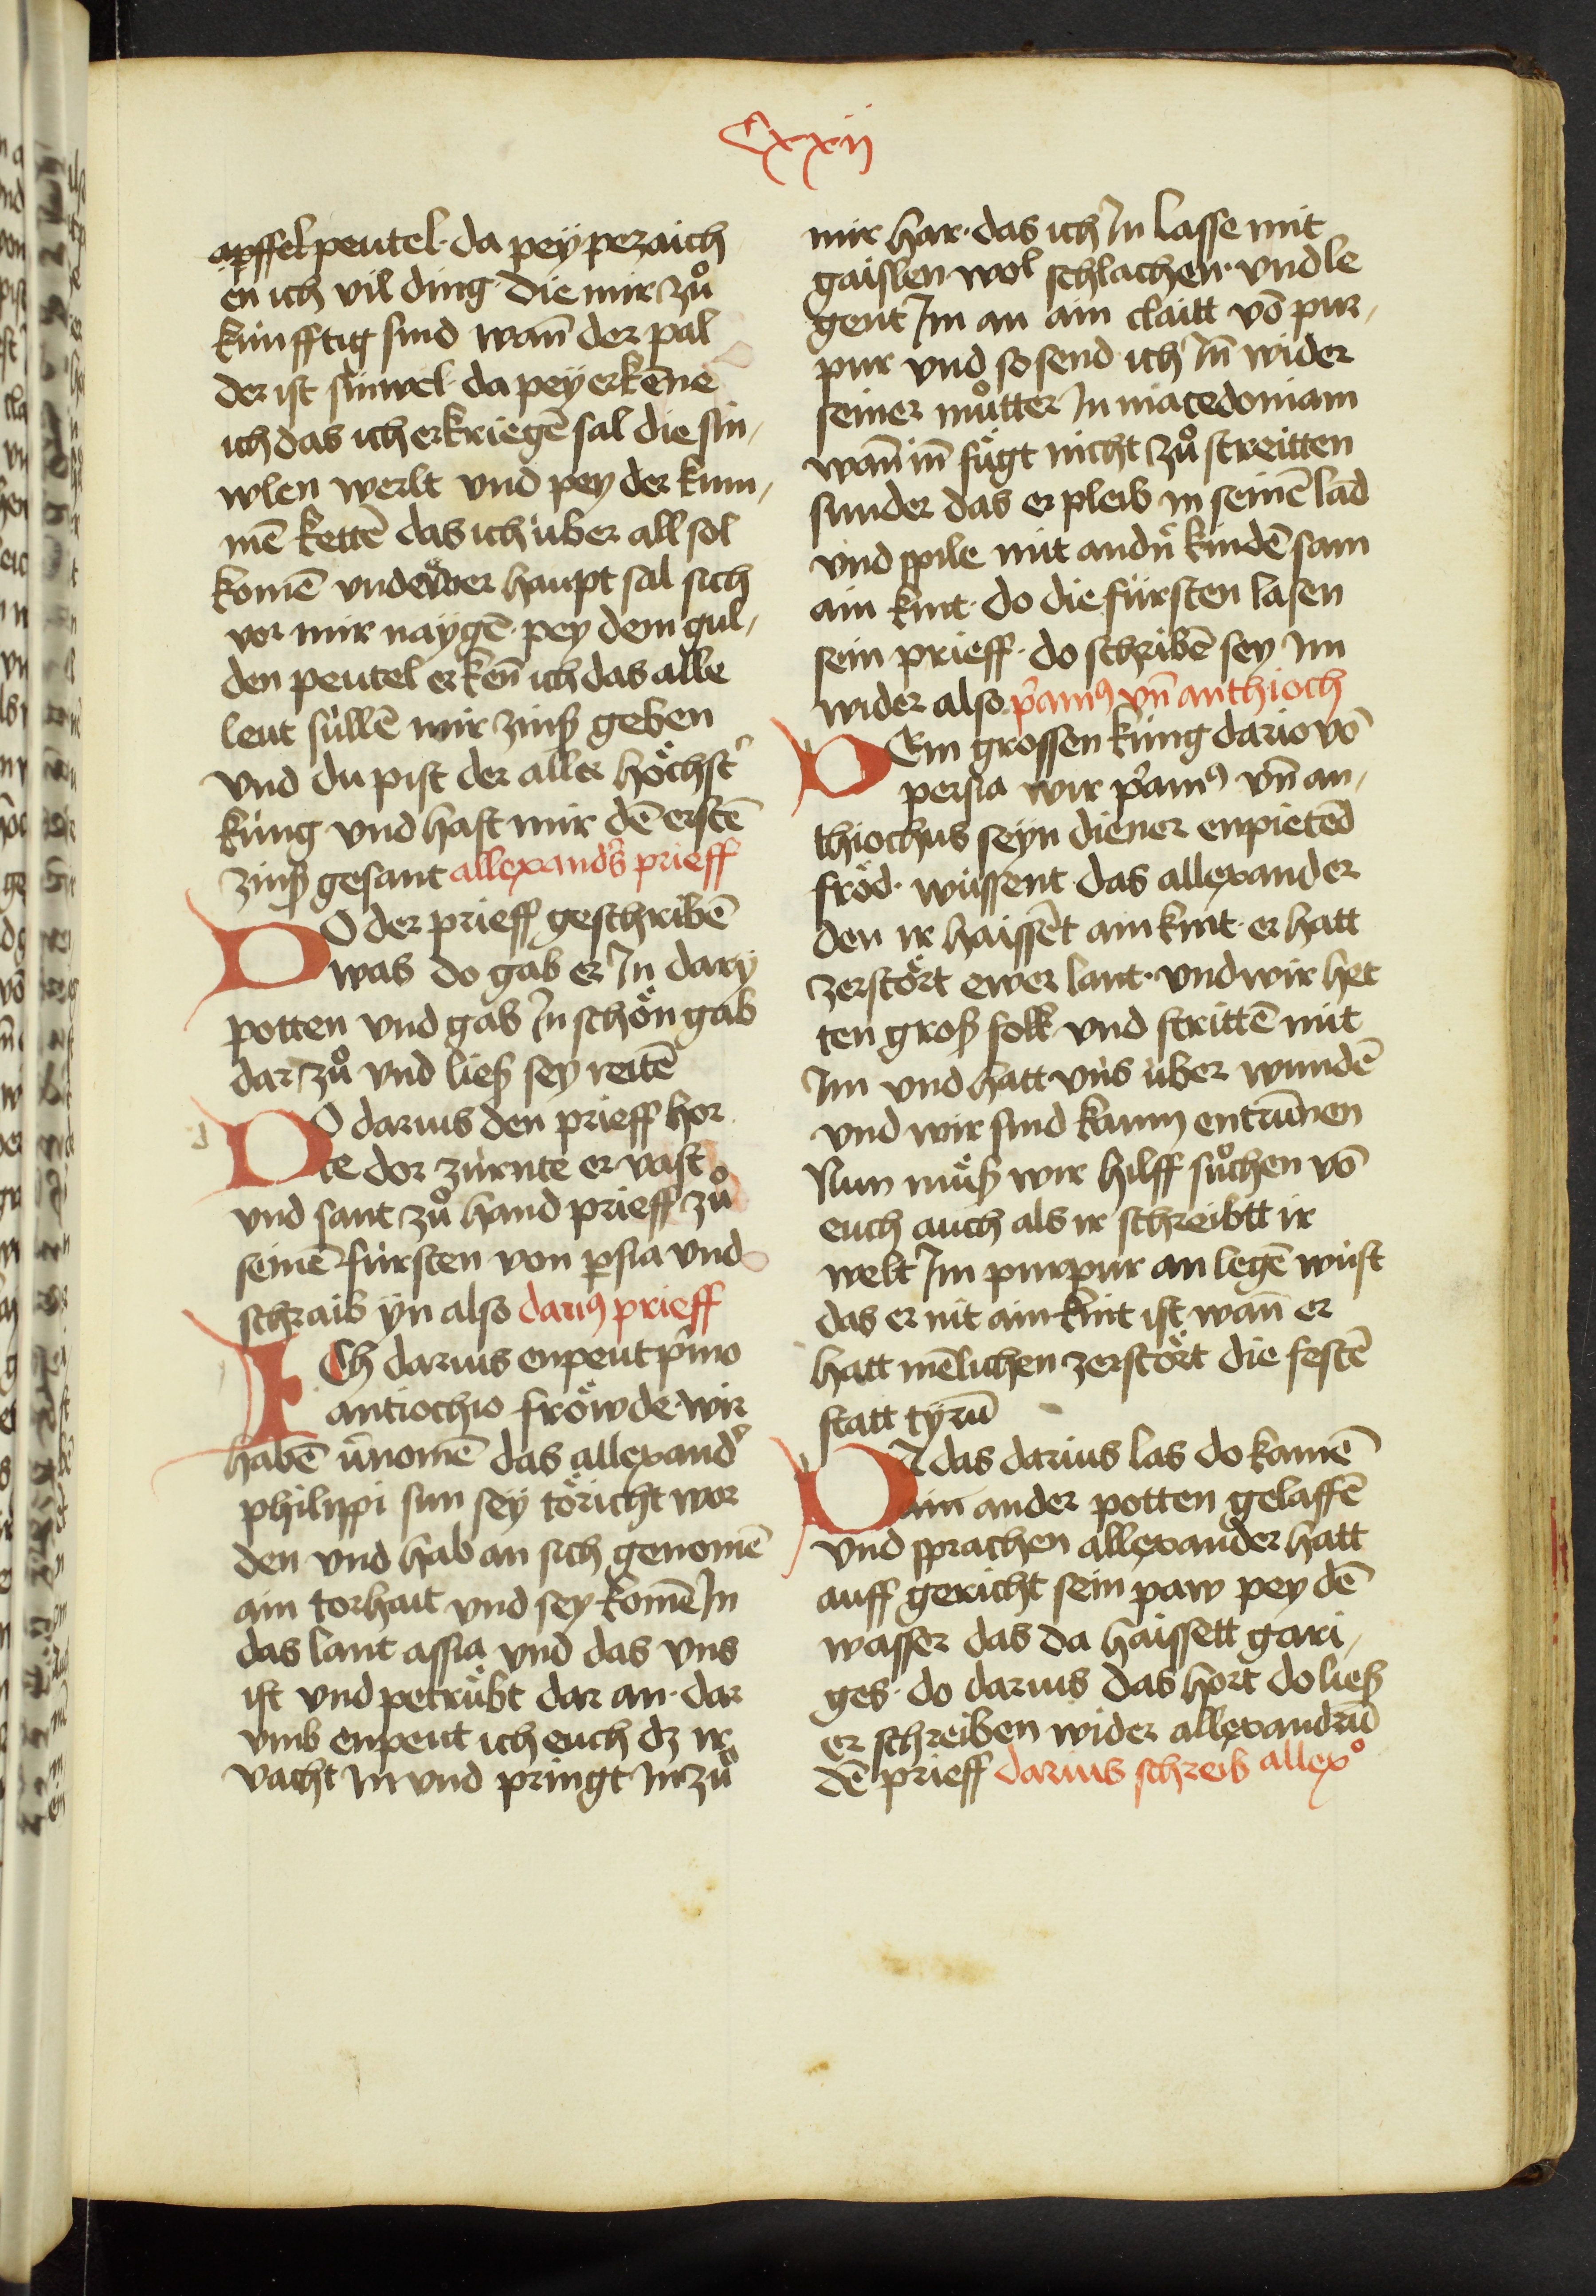 Cxxij
apffelpeutel· da pey pezaich
en ich vil ding· die mir zuͦ
kunfftig sind wan̄ der pal
der ist sinwel· da pey erkēne
ich das ich erkriegē sal die sin,
wlen werlt vnd pey der krum,
mē kettē das ich über all sol
komē vnd ewer haupt sal sich
vor mir naygē· pey dem gul,
den peutel erken̄ ich das alle
leut süllē mir zinß geben
vnd du pist der aller höchst'
küng vnd hast mir dē erstē
zinß gesant allexand's prieff
DO der prieff geschribē
was do gab er Jn dary
potten vnd gab Jn schön gab
dar zuͦ vnd ließ sey reitē
DO darius den prieff hor
te dor zürnte er vast
vnd sant zuͦ hand prieff zuͦ
seinē fürsten von p̄sia vnd
schraib yn also dariꝰ prieff
ICh darius enpeut p'mo
antiochio fröwde· wir
habē v̄nomē das allexand'
philippi sun sey töricht wor
den vnd hab an sich genomē
ain torhait vnd sey komē Jn
das lant assia vnd das vns
ist vnd petrübt dar an· dar
vmb enpeut ich euch dz ir
vacht Jn vnd pringt Jn zuͦ
mir har· das ich Jn lasse mit
gaislen wol schlachen· vnd le
gent Jm an ain claitt vō pur,
pur vnd so send ich Jn̄ wider
seiner muͦtter Jn macedoniam
wan̄ in̄ fügt nicht zuͦ streitten
sunder das er pleib in seinē lād
vnd spile mit andn̄ kindē sam
ain kint· do die fürsten lasen
sein prieff· do schribē sey Jm
wider also p'amꝰ vn̄ anthioch
DEm grossen küng dario vō
persia wir p'amꝰ vn̄ an,
thiochus seyn diener enpietēd
fröd· wüssent das allexander
den ir haissēt ain kint· er hatt
zerstört ewer lant· vnd wir het
ten groß folk vnd strittē mit
Jm vnd hatt vns über wundē
vnd wir sind kaum entrūnen
Nun müß wir hilff suͦchen vō
euch auch als ir schreibtt ir
welt Jm purpur an legē wüst
das er nit ain kint ist wan̄ er
hatt mēlichen zerstört die festē
statt tyrū
DA das darius las do kamē
ain ander potten gelaffē
vnd sprachen allexander hatt
auff gericht sein paw pey dē
wasser das da haissett gari,
ges· do darius das hort do ließ
er schreiben wider allexandrū
dē prieff darius schreib allexº